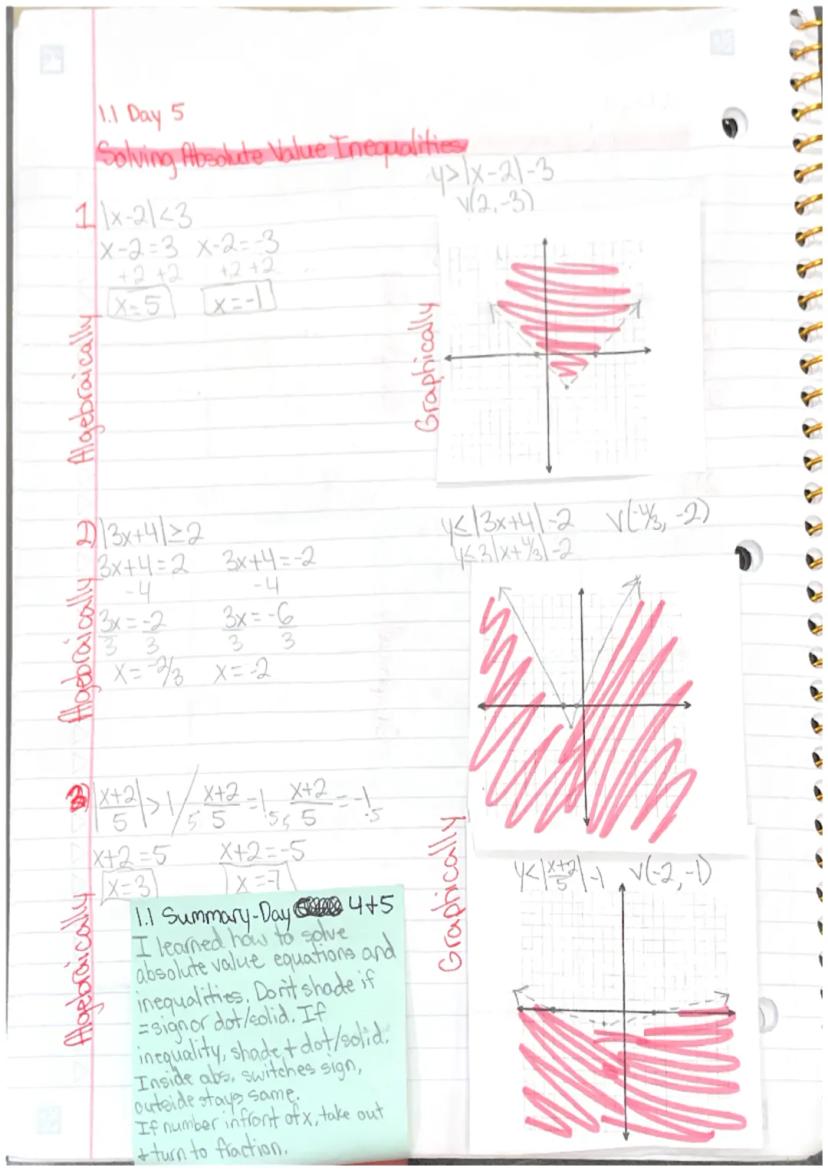 1.1 Day 5
Solving Absolute Value Inequalities
1 |x-2|<3
x-2=3 x-2=-3
+2 +2 +2 +2
x=5 x=-1
Algebraically
y>|x-2|-3
V(2,-3)
Graphically
2) |3x+4|≥2
3x+4=2 3x+4=-2
-4 -4
3x=-2 3x=-6
3 3 3 3
x=-2/3 x=-2
Algebraically
y≤|3x+4|-2 V(-4/3, -2)
y≤3|x+4/3|-2
|x+2/5|>1 / 5 x+2/5=1.5 5. x+2/5=-1.5
x+2=5 x+2=-5
x=3 x=-7
Algebraically
Graphically
y<|x+2/5|-1 V(-2,-1)
1.1 Summary-Day 4+5
I learned how to solve
absolute value equations and
inequalities. Don't shade if
=sign or dot/solid. If
inequality, shade + dot/solid.
Inside abs. switches sign,
outside stays same.
If number infront of x, take out
+ turn to fraction.